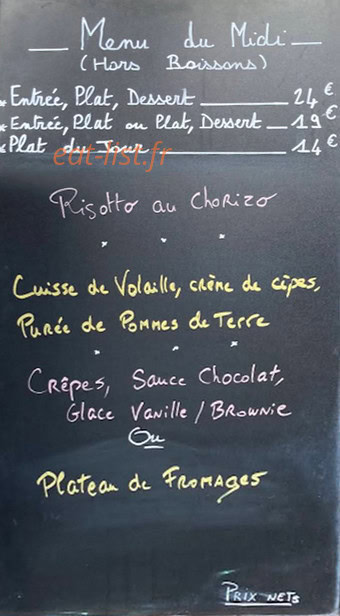 Menu du Midi
(Hors Boissons)
* Entrée, Plat, Dessert 24€
* Entrée, Plat ou Plat, Dessert 19€
* Plat du Jour 14€
eat-list.fr
Risotto au Chorizo
* * *
Cuisse de Volaille, crème de cèpes,
Purée de Pommes de Terre
* * *
Crêpes, Sauce Chocolat,
Glace Vanille / Brownie
Ou
Plateau de Fromages
Prix nets